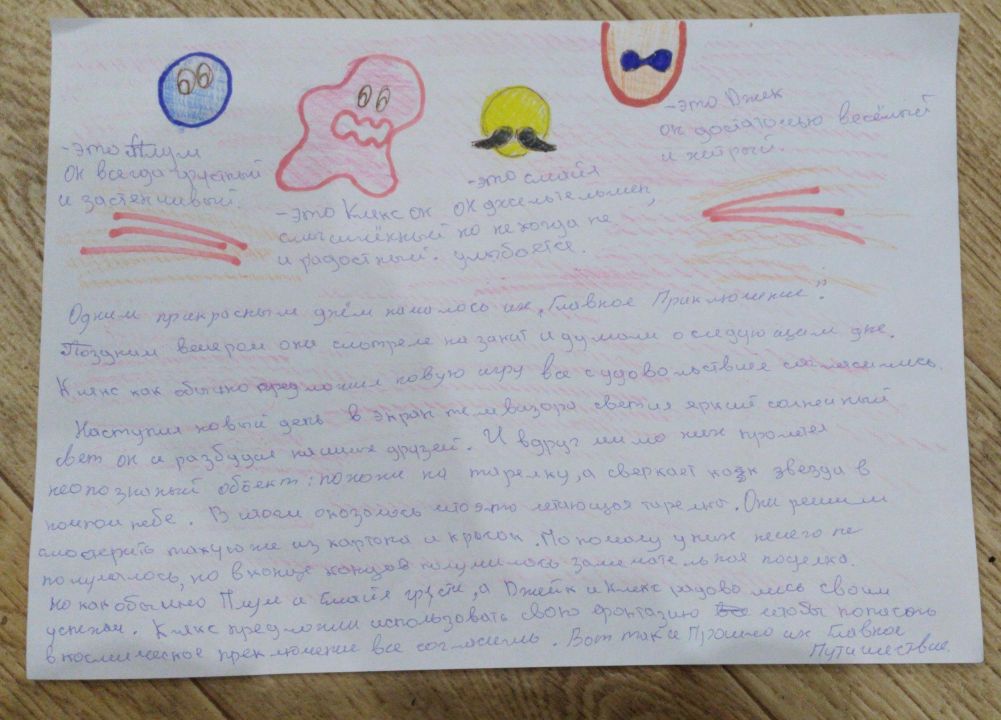 -это Плум
он всегда грустный
и застенчивый.
-это Клякс он
смышлённый но
и радостный.
-это смайл
он джельтельмен,
некогда не
улыбается.
-это Джек
он достаточно весёлый
и хитрый.
Одним прекрасным днём началось их "Главное Приключение".
Поздним вечером они смотреле на закат и думали о следующем дне.
Клякс как обычно предложил новую игру все с удовольствием согласились.
Наступил новый день в экран телевизора светил яркий солнечный
свет он и разбудил наших друзей. И вдруг мимо них пролетел
неопознаный объект: похожи на тарелку, а сверкает как звезда в
ночном небе. В итоги оказалось что это летающая тарелка. Они решили
смастерить такую же из картона и красок. По началу у них нечего не
получалось, но в конце концов получилась замечательная поделка.
Но как обычно Плум и Смайл грусти, а Джейк и Клякс радовались своим
успехам. Клякс предложил использовать свою фонтазию чтобы попасть
в космическое преключение все согласились. Вот так и Прошло их Главное
Путишествие.